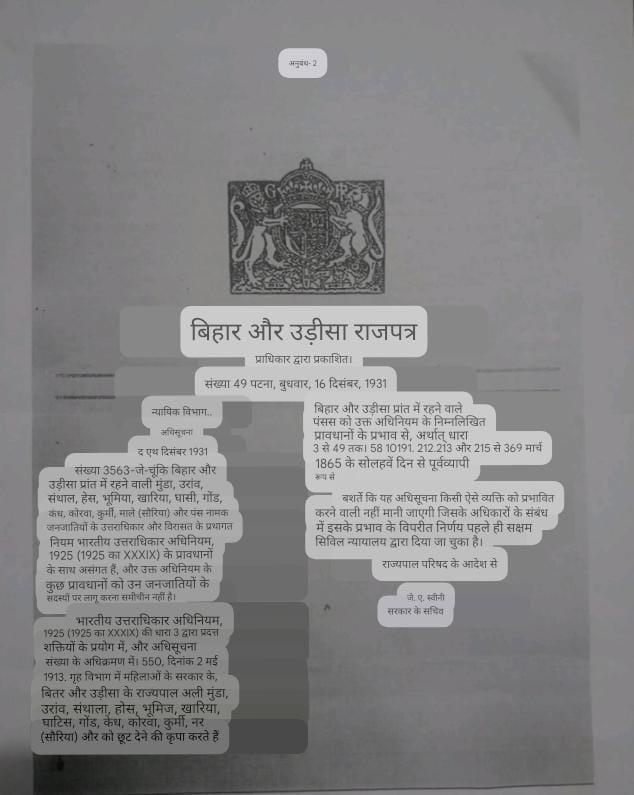 अनुबंध- 2
बिहार और उड़ीसा राजपत्र
प्राधिकार द्वारा प्रकाशित।
संख्या 49 पटना, बुधवार, 16 दिसंबर, 1931
न्यायिक विभाग..
अधिसूचना
द एथ दिसंबर 1931
संख्या 3563-जे-चूंकि बिहार और
उड़ीसा प्रांत में रहने वाली मुंडा, उरांव,
संथाल, हेस, भूमिया, खारिया, घासी, गोंड,
कंध, कोरवा, कुर्मी, माले (सौरिया) और पंस नामक
जनजातियों के उत्तराधिकार और विरासत के प्रथागत
नियम भारतीय उत्तराधिकार अधिनियम,
1925 (1925 का XXXIX) के प्रावधानों
के साथ असंगत हैं, और उक्त अधिनियम के
कुछ प्रावधानों को उन जनजातियों के
सदस्यों पर लागू करना समीचीन नहीं है।
भारतीय उत्तराधिकार अधिनियम,
1925 (1925 का XXXIX) की धारा 3 द्वारा प्रदत्त
शक्तियों के प्रयोग में, और अधिसूचना
संख्या के अधिक्रमण में। 550, दिनांक 2 मई
1913. गृह विभाग में महिलाओं के सरकार के,
बितर और उड़ीसा के राज्यपाल अली मुंडा,
उरांव, संथाला, होस, भूमिज, खारिया,
घाटिस, गोंड, केध, कोरवा, कुर्मी, नर
(सौरिया) और को छूट देने की कृपा करते हैं
बिहार और उड़ीसा प्रांत में रहने वाले
पंसस को उक्त अधिनियम के निम्नलिखित
प्रावधानों के प्रभाव से, अर्थात् धारा
3 से 49 तक। 58 10191. 212.213 और 215 से 369 मार्च
1865 के सोलहवें दिन से पूर्वव्यापी
रूप से
बशर्ते कि यह अधिसूचना किसी ऐसे व्यक्ति को प्रभावित
करने वाली नहीं मानी जाएगी जिसके अधिकारों के संबंध
में इसके प्रभाव के विपरीत निर्णय पहले ही सक्षम
सिविल न्यायालय द्वारा दिया जा चुका है।
राज्यपाल परिषद के आदेश से
जे. ए. स्वीनी
सरकार के सचिव